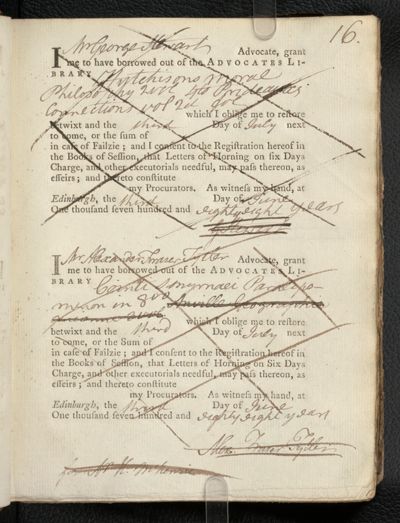 16.
I Mr George Stewart Advocate, grant
me to have borrowed out of the ADVOCATES LI-
BRARY Hutchisons moral
Philosophy 2 vol 4to Prideaux's
Connections vol 2d
which I oblige me to restore
betwixt and the third Day of July next
to come, or the sum of
in case of Failzie; and I consent to the Registration hereof in
the Books of Session, that Letters of Horning on six Days
Charge, and other executorials needful, may pass thereon, as
effeirs; and thereto constitute
my Procurators. As witness my hand, at
Edinburgh, the third Day of June
One thousand seven hundred and eighty eight years
I Mr Alexander Fraser Tytler Advocate, grant
me to have borrowed out of the ADVOCATES LI-
BRARY
in 8vo Anville Geographie
which I oblige me to restore
betwixt and the third Day of July next
to come, or the Sum of
in case of Failzie; and I consent to the Registration hereof in
the Books of Session, that Letters of Horning on Six Days
Charge, and other executorials needful, may pass thereon, as
effeirs; and thereto constitute
my Procurators. As witness my hand, at
Edinburgh, the third Day of June
One thousand seven hundred and eighty eight years
Alex. Fraser Tytler